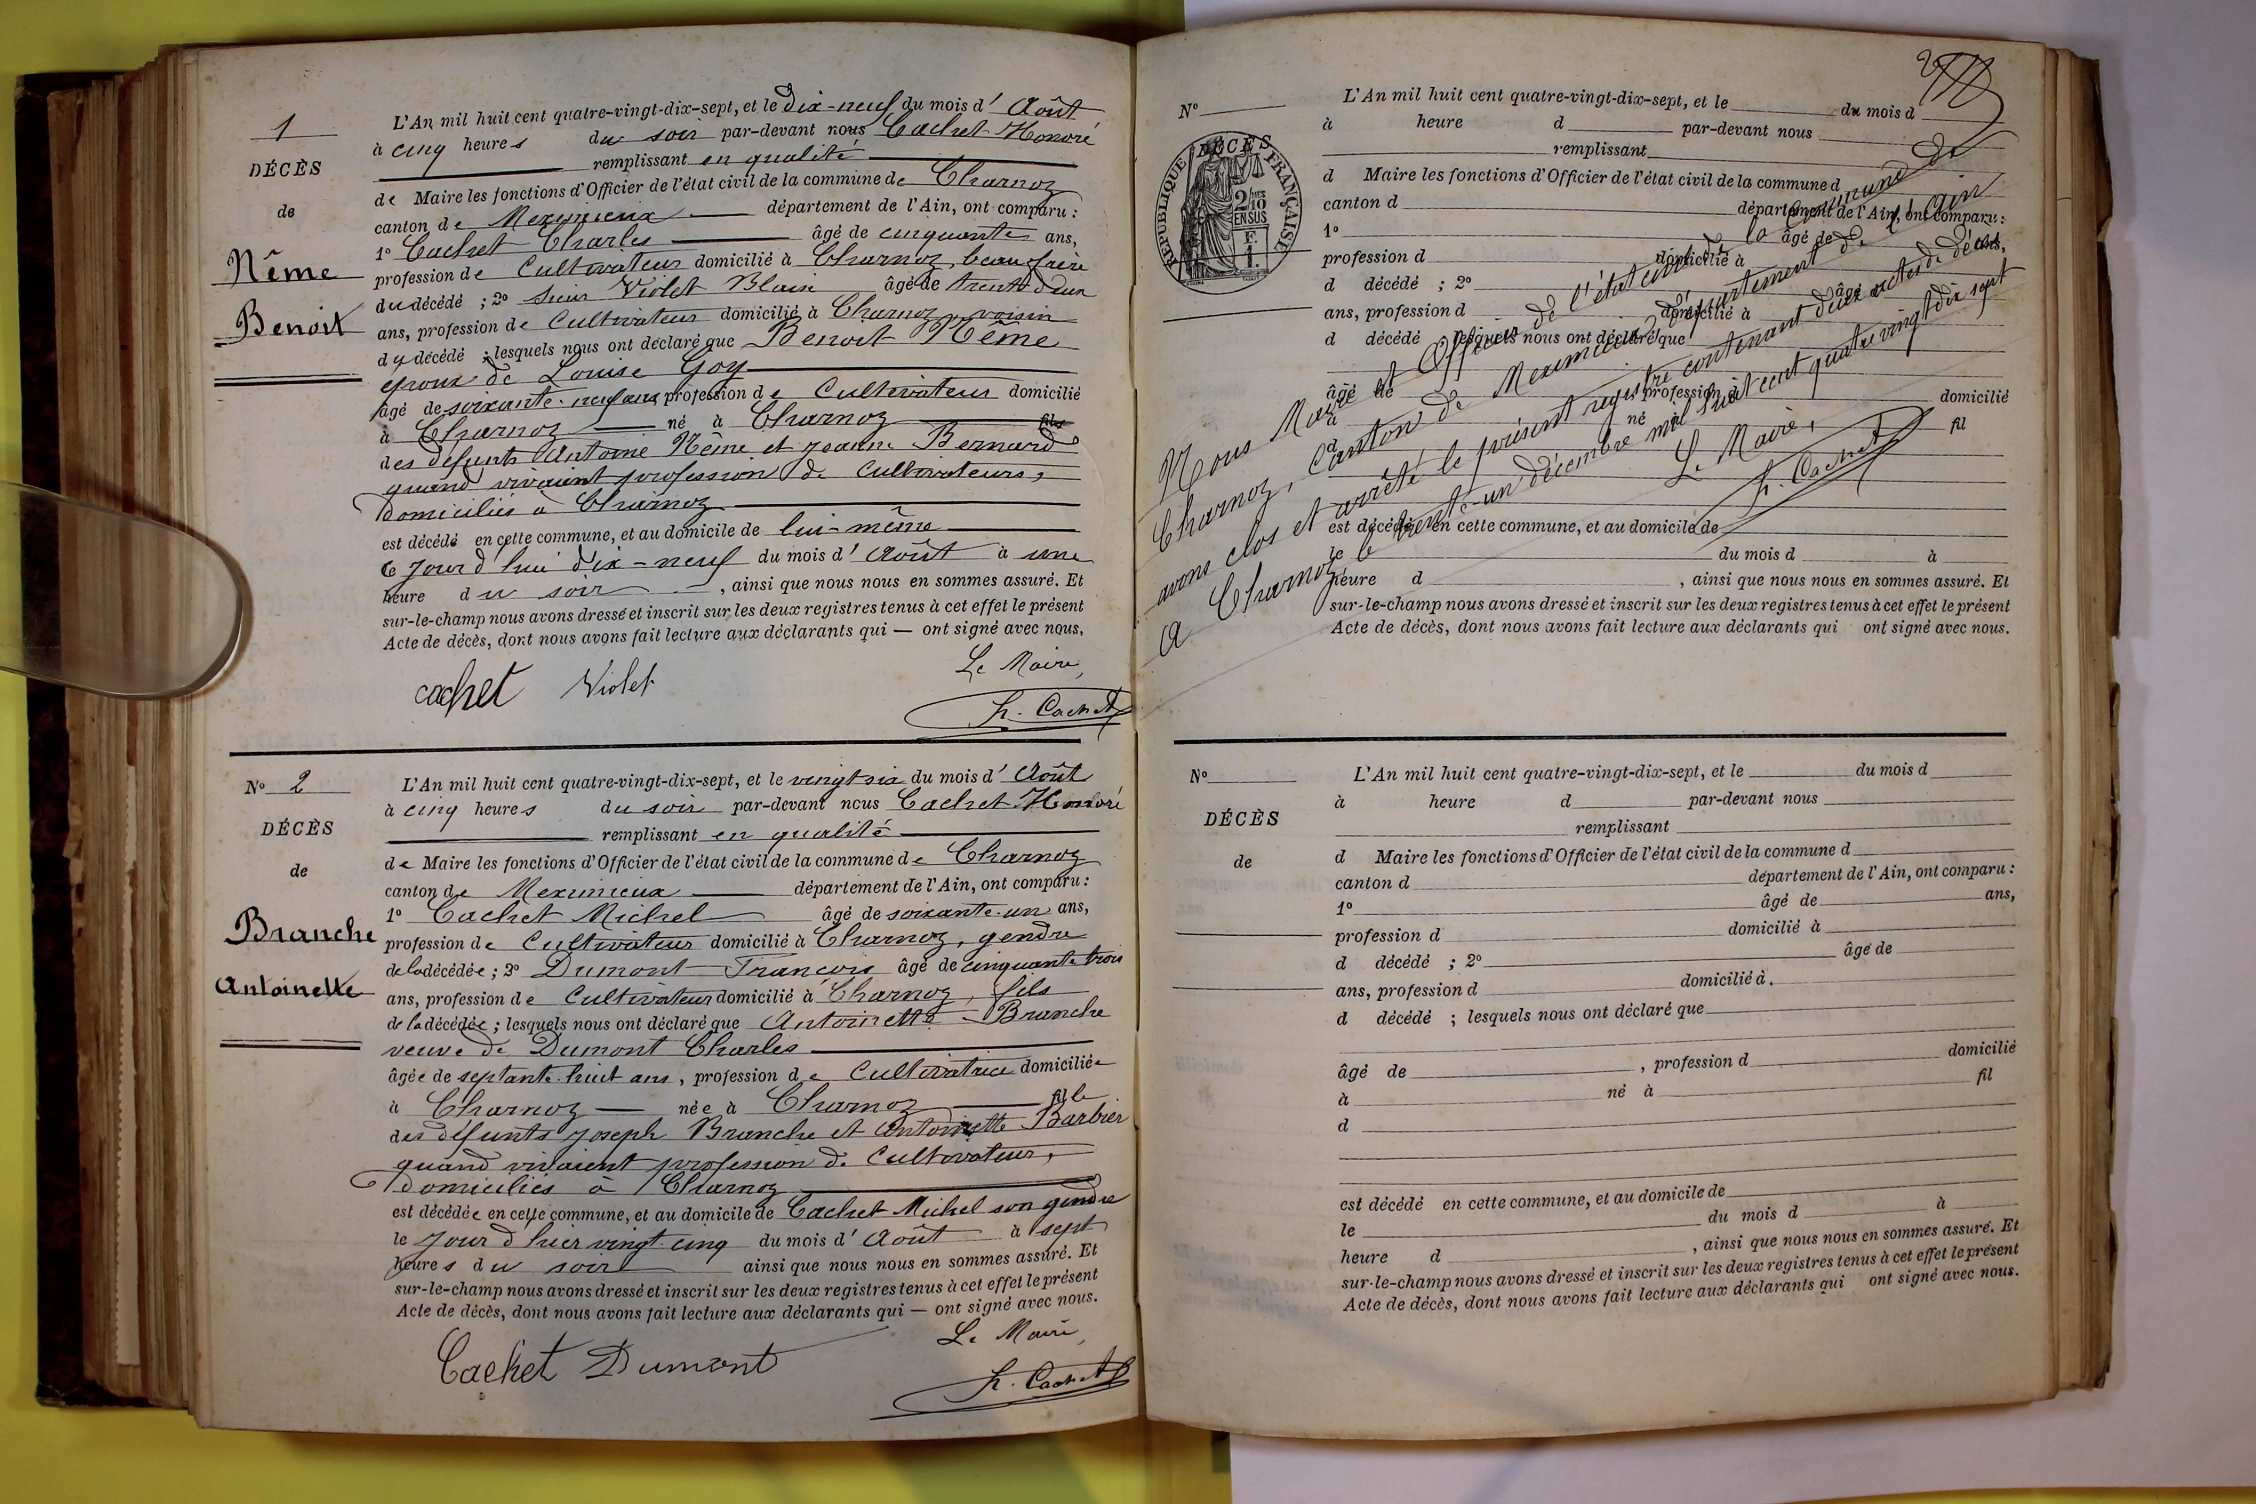 1
DÉCÈS
de
Nême
Benoit
L'An mil huit cent quatre-vingt-dix-sept, et le dix-neuf du mois d' Août
à cinq heures du soir par-devant nous Cachet Honoré
remplissant en qualité
de Maire les fonctions d'Officier de l'état civil de la commune de Charnoz
canton de Meximieux département de l'Ain, ont comparu :
1° Cachet Charles âgé de cinquante ans,
profession de Cultivateur domicilié à Charnoz, beau frère
du décédé ; 2° Sieur Violet Blain âgé de trente deux
ans, profession de Cultivateur domicilié à Charnoz voisin
du décédé ; lesquels nous ont déclaré que Benoit Nême
époux de Louise Goy
âgé de soixante-neuf ans, profession de Cultivateur domicilié
à Charnoz né à Charnoz fils
des défunts Antoine Nême et Jeanne Bernard
quand vivaient profession de Cultivateurs,
domiciliés à Charnoz
est décédé en cette commune, et au domicile de lui-même
le jour d'hui dix-neuf du mois d' Août à une
heure du soir, ainsi que nous nous en sommes assuré. Et
sur-le-champ nous avons dressé et inscrit sur les deux registres tenus à cet effet le présent
Acte de décès, dont nous avons fait lecture aux déclarants qui — ont signé avec nous.
Le Maire,
Cachet Violet
h. Cachet
N° 2
DÉCÈS
de
Branche
Antoinette
L'An mil huit cent quatre-vingt-dix-sept, et le vingt six du mois d' Août
à cinq heures du soir par-devant nous Cachet Honoré
remplissant en qualité
de Maire les fonctions d'Officier de l'état civil de la commune de Charnoz
canton de Meximieux département de l'Ain, ont comparu :
1° Cachet Michel âgé de soixante-un ans,
profession de Cultivateur domicilié à Charnoz, gendre
de la décédée ; 2° Dumont François âgé de cinquante trois
ans, profession de Cultivateur domicilié à Charnoz, fils
de la décédée ; lesquels nous ont déclaré que Antoinette Branche
veuve de Dumont Charles
âgée de septante-huit ans, profession de Cultivatrice domiciliée
à Charnoz née à Charnoz fille
des défunts Joseph Branche et Antoinette Barbier
quand vivaient profession de Cultivateur,
domiciliés à Charnoz
est décédée en cette commune, et au domicile de Cachet Michel son gendre
le jour d'hier vingt-cinq du mois d' Août à sept
heures du soir ainsi que nous nous en sommes assuré. Et
sur-le-champ nous avons dressé et inscrit sur les deux registres tenus à cet effet le présent
Acte de décès, dont nous avons fait lecture aux déclarants qui — ont signé avec nous.
Le Maire,
Cachet Dumont
h. Cachet
2
N°
RÉPUBLIQUE FRANÇAISE
DÉCÈS
2/10
EN SUS
F.
1.
L'An mil huit cent quatre-vingt-dix-sept, et le du mois d
à heure d par-devant nous
remplissant
d Maire les fonctions d'Officier de l'état civil de la commune d
canton d département de l'Ain, ont comparu :
1° âgé de ans,
profession d domicilié à
d décédé ; 2° âgé
ans, profession d domicilié à
d décédé lesquels nous ont déclaré que
âgé de profession d domicilié
à né à fil
d
est décédé en cette commune, et au domicile de
le du mois d à
heure d , ainsi que nous nous en sommes assuré. Et
sur-le-champ nous avons dressé et inscrit sur les deux registres tenus à cet effet le présent
Acte de décès, dont nous avons fait lecture aux déclarants qui ont signé avec nous.
Nous Maire et Officier de l'état civil de la commune de
Charnoz, canton de Meximieux département de l'Ain
avons clos et arrêté le présent registre contenant deux actes de décès,
à Charnoz le trente-un décembre mil huit cent quatre vingt dix sept
Le Maire,
h. Cachet
N°
DÉCÈS
de
L'An mil huit cent quatre-vingt-dix-sept, et le du mois d
à heure d par-devant nous
remplissant
d Maire les fonctions d'Officier de l'état civil de la commune d
canton d département de l'Ain, ont comparu :
1° âgé de ans,
profession d domicilié à
d décédé ; 2° âgé de
ans, profession d domicilié à.
d décédé ; lesquels nous ont déclaré que
âgé de , profession d domicilié
à né à fil
d
est décédé en cette commune, et au domicile de
le du mois d à
heure d , ainsi que nous nous en sommes assuré. Et
sur-le-champ nous avons dressé et inscrit sur les deux registres tenus à cet effet le présent
Acte de décès, dont nous avons fait lecture aux déclarants qui ont signé avec nous.